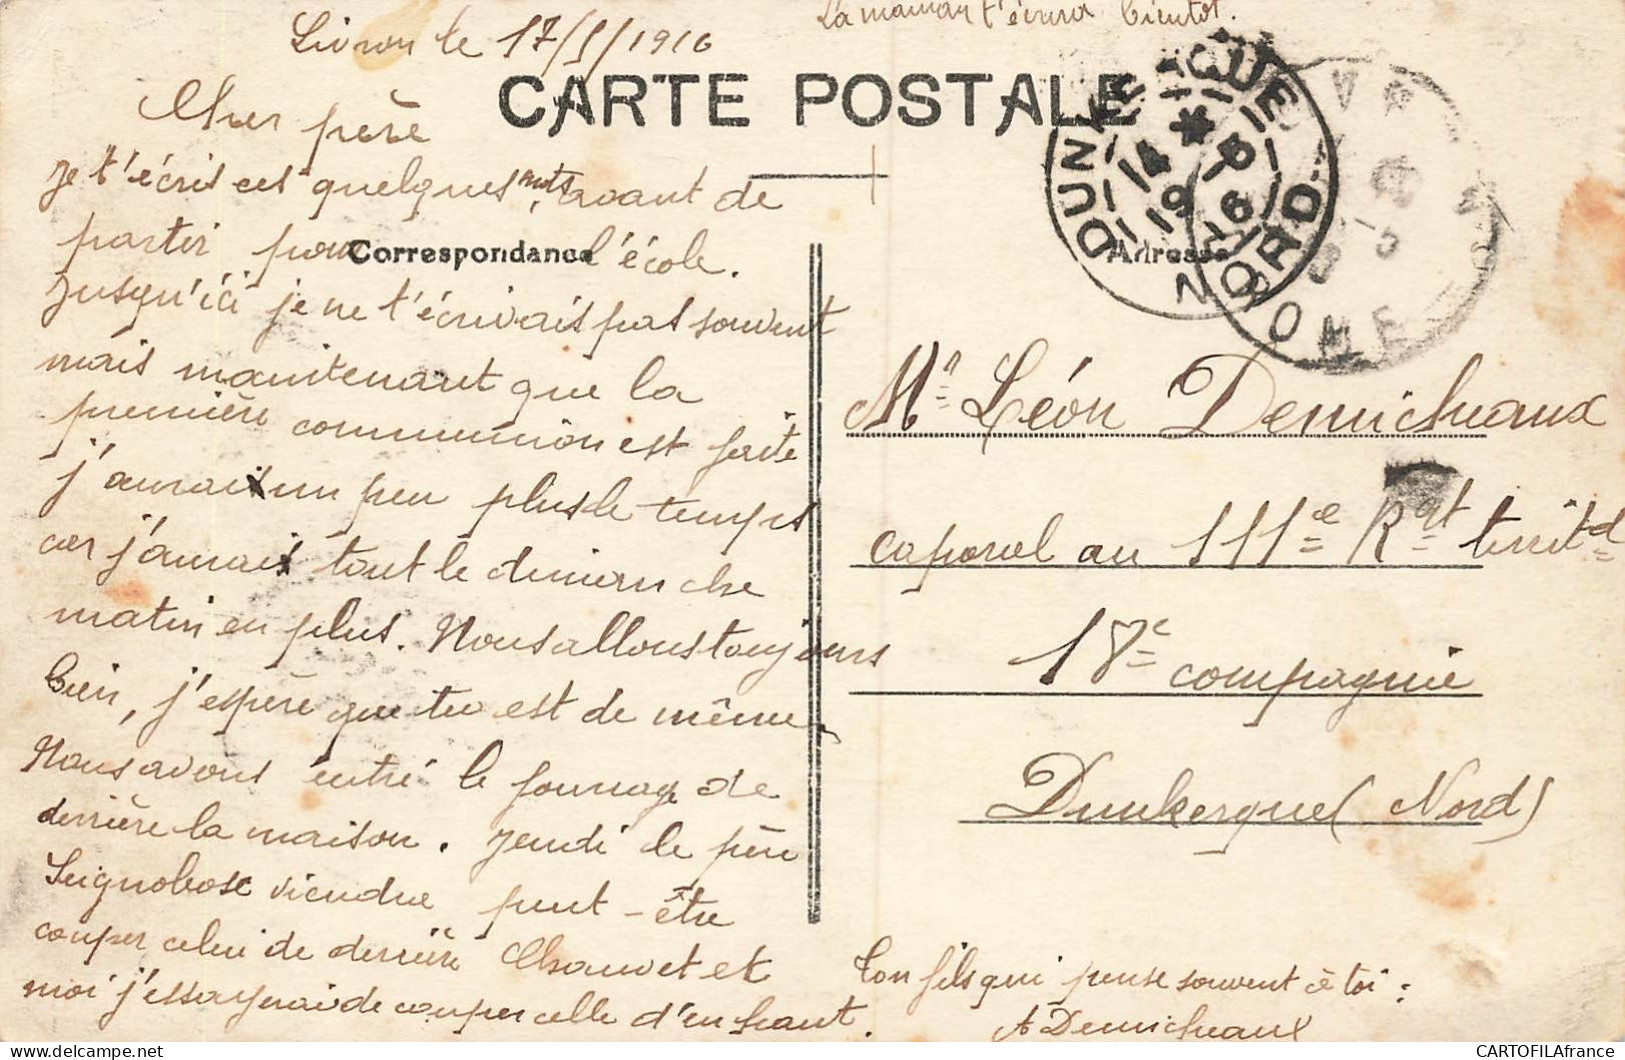 La maman t'écrira bientot.
Livron le 17/5/1916
CARTE POSTALE
Cher père
Je t'écris ces quelques mots, avant de
partir pour l'école.
Correspondance
Jusqu'ici je ne t'écrivais pas souvent
mais maintenant que la
première communion est faite
j'aurai un peu plus le temps
car j'aurai tout le dimanche
matin en plus. Nous allons toujours
bien, j'espère que tu est de même.
Nous avons entré le fourrage de
derrière la maison. Jeudi le père
Seignobosc viendra peut-être
couper celui de derrière Chauvet et
moi j'essayerai de couper celle d'en haut.
DUNKERQUE
14 * 5
19 16
NORD
DROME
Adresse
Mr Léon Demicheaux
caporal au 111e Rgt territal
18e compagnie
Dunkerque (Nord)
Ton fils qui pense souvent à toi :
A Demicheaux
CARTOFILAfrance